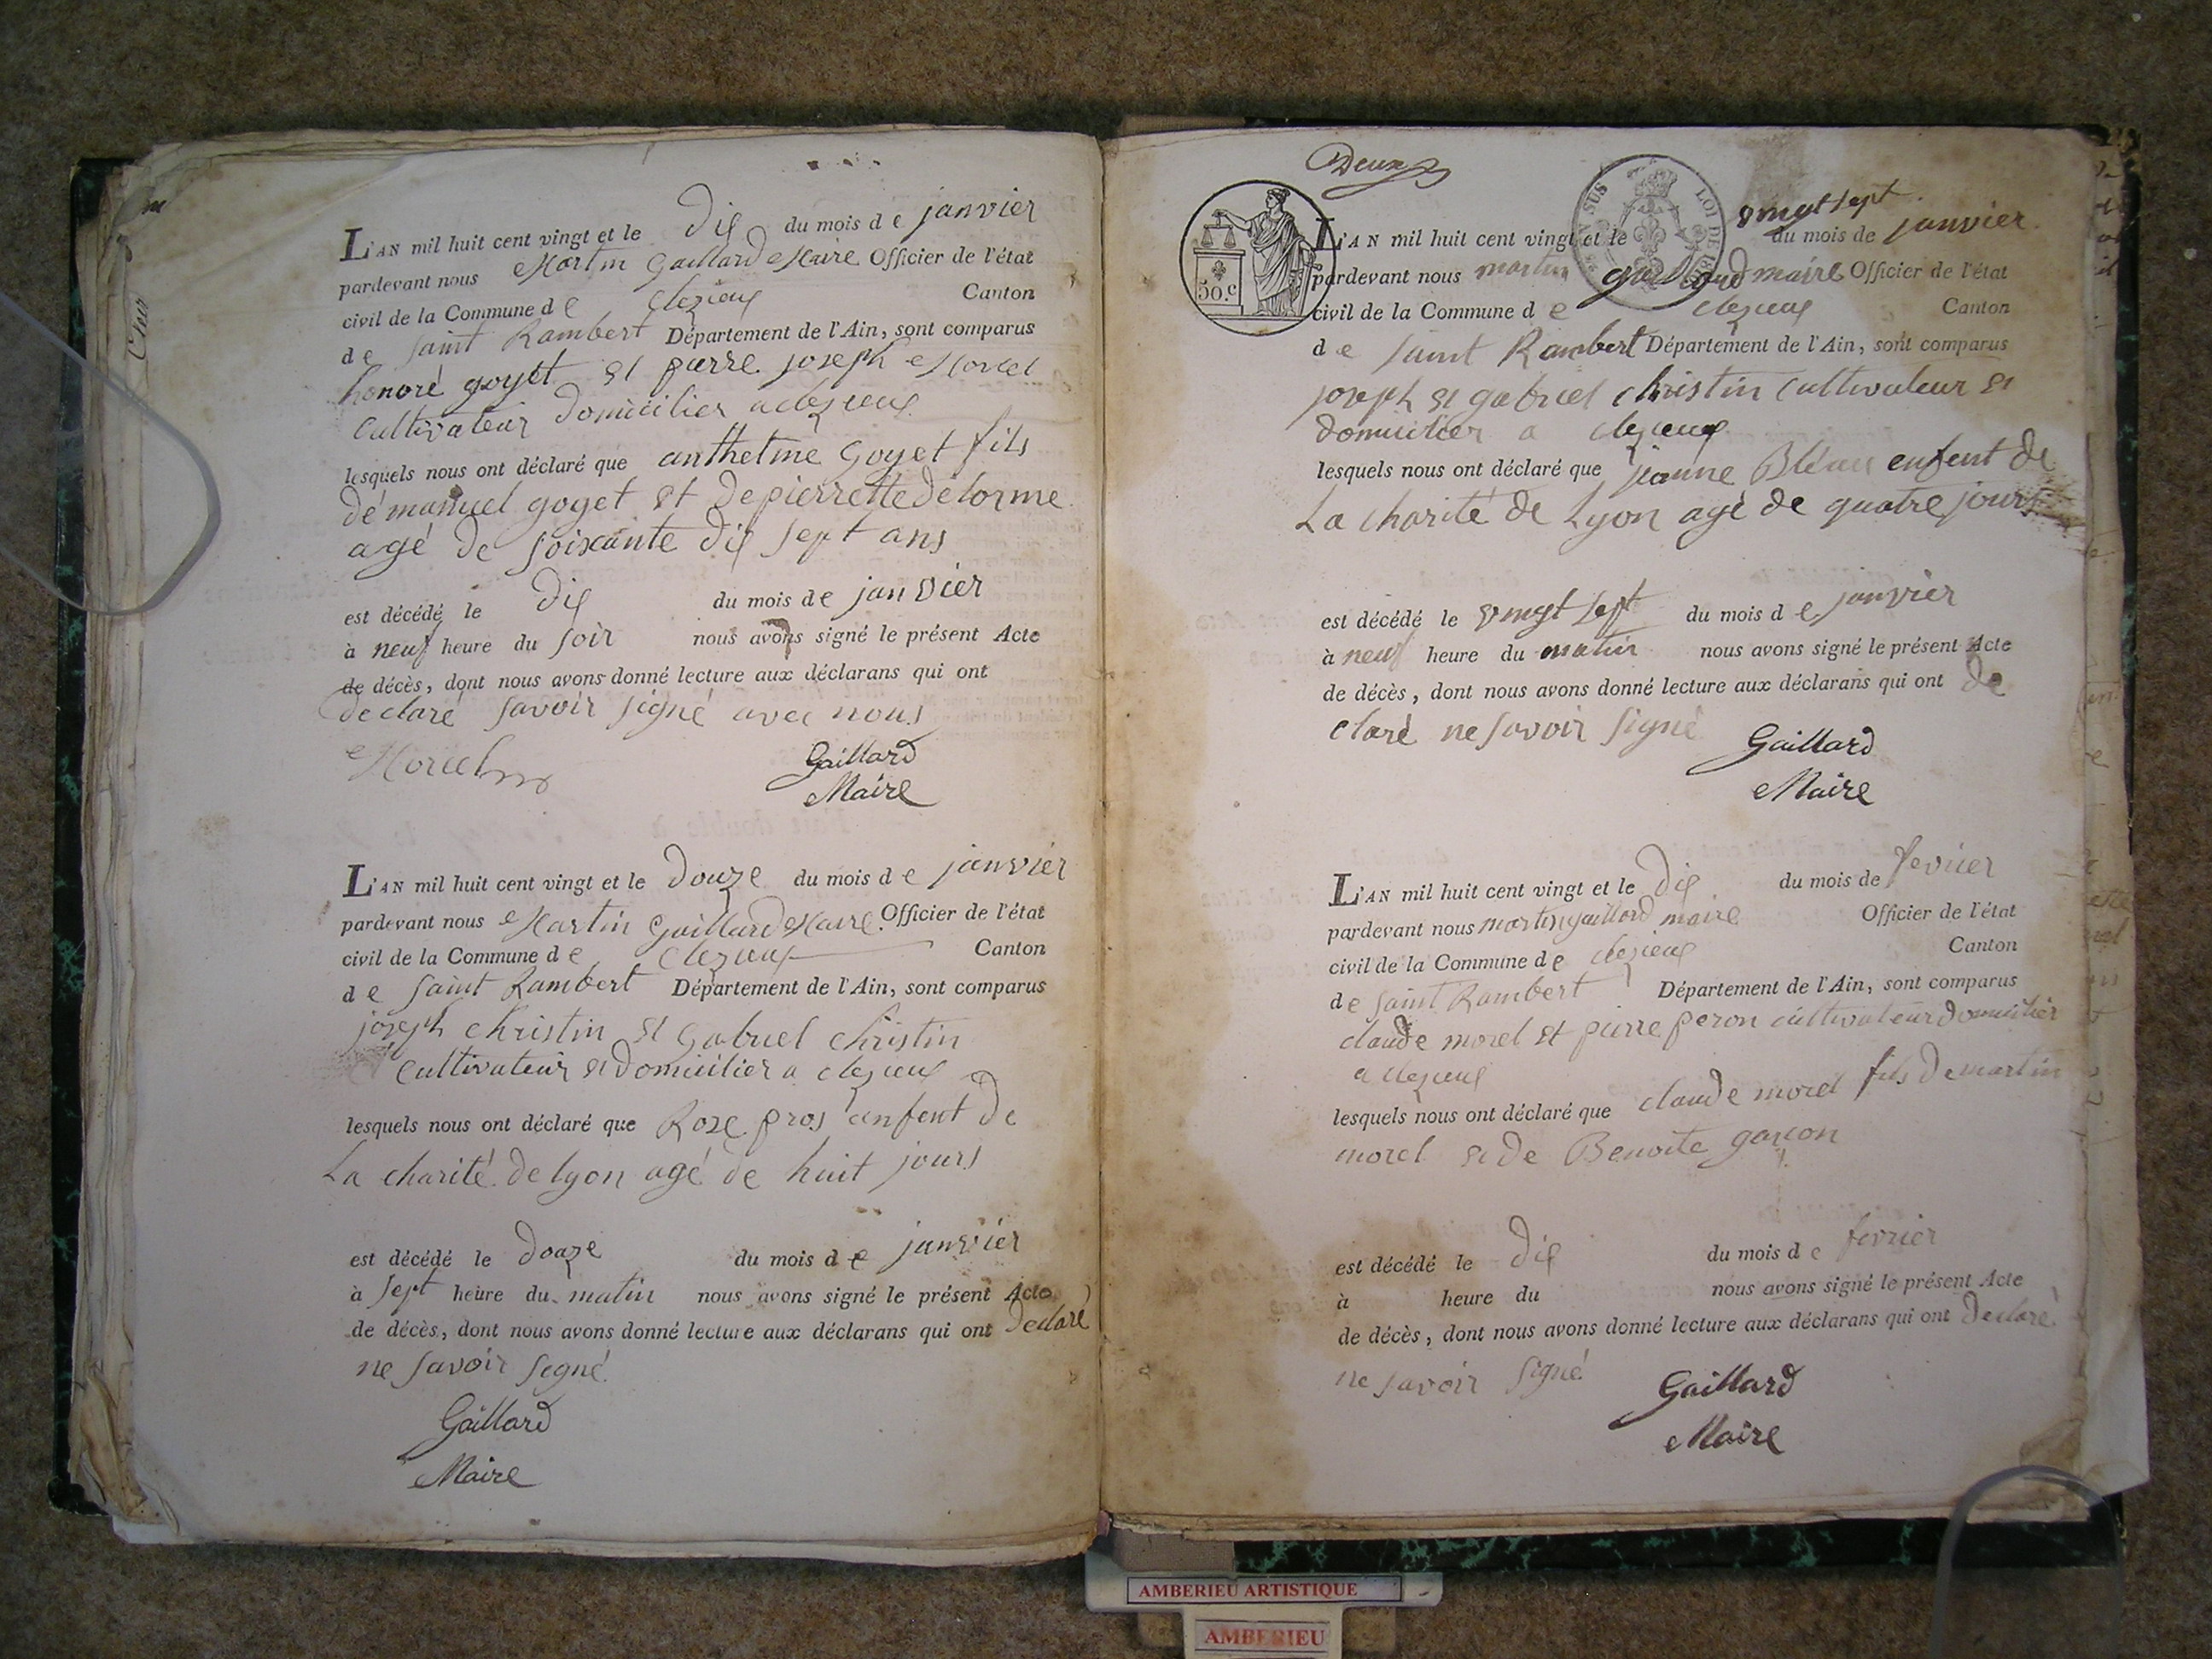 L'AN mil huit cent vingt et le dix du mois de janvier
pardevant nous Martin Gaillard Maire Officier de l'état
civil de la Commune de clezieux Canton
de saint Rambert Département de l'Ain, sont comparus
honoré goyet et pierre joseph Morel
cultivateur domicilier a clezieux
lesquels nous ont déclaré que anthelme Goyet fils
démanuel goyet et de pierrette délorme
agé de soixante dix sept ans
est décédé le dix du mois de janvier
à neuf heure du soir nous avons signé le présent Acte
de décès, dont nous avons donné lecture aux déclarans qui ont
declaré savoir signé avec nous
Morel Gaillard
Maire
L'AN mil huit cent vingt et le douze du mois de janvier
pardevant nous Martin Gaillard Maire Officier de l'état
civil de la Commune de clezieux Canton
de saint Rambert Département de l'Ain, sont comparus
joseph christin et Gabriel christin
cultivateur et domicilier a clezieux
lesquels nous ont déclaré que Roze pros enfent de
La charité de lyon agé de huit jours
est décédé le douze du mois de janvier
à sept heure du matin nous avons signé le présent Acte
de décès, dont nous avons donné lecture aux déclarans qui ont declaré
ne savoir signé
Gaillard
Maire
Deux
SUS LOI DE
50.c
L'AN mil huit cent vingt et le vingt sept du mois de janvier
pardevant nous martin gaillard maire Officier de l'état
civil de la Commune de clezieux Canton
de saint Rambert Département de l'Ain, sont comparus
joseph et gabriel christin cultivateur et
domicilier a clezieux
lesquels nous ont déclaré que jeanne enfent de
La charité de Lyon agé de quatre jours
est décédé le vingt sept du mois de janvier
à neuf heure du matin nous avons signé le présent Acte
de décès, dont nous avons donné lecture aux déclarans qui ont de
claré ne savoir signé
Gaillard
Maire
L'AN mil huit cent vingt et le dix du mois de fevrier
pardevant nous martin gaillard maire Officier de l'état
civil de la Commune de clezieux Canton
de saint Rambert Département de l'Ain, sont comparus
claude morel et pierre peron cultivateur domicilier
a clezieux
lesquels nous ont déclaré que claude morel fils de martin
morel et de Benoite garcon
est décédé le dix du mois de fevrier
à heure du nous avons signé le présent Acte
de décès, dont nous avons donné lecture aux déclarans qui ont declaré
ne savoir signé
Gaillard
Maire
AMBERIEU ARTISTIQUE
AMBERIEU